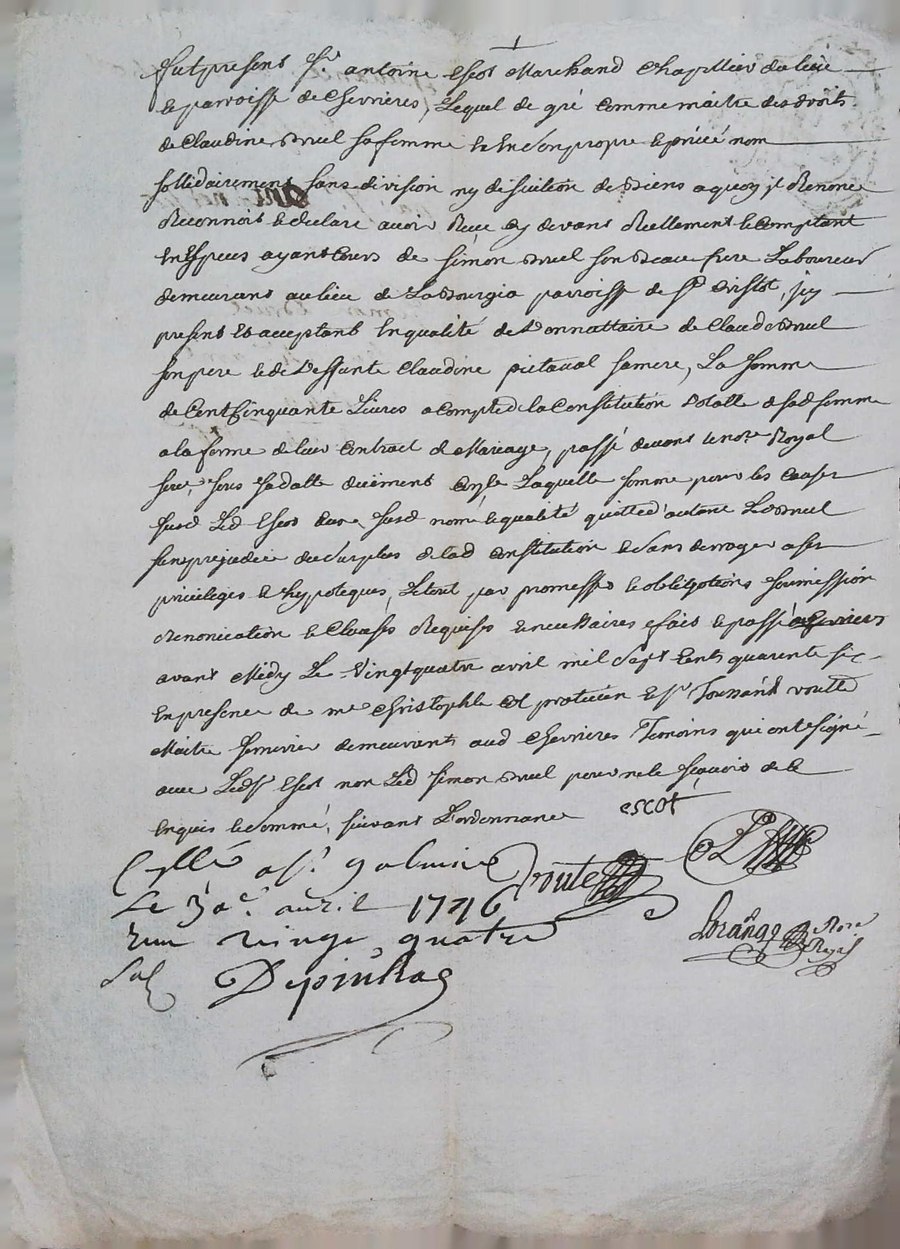 fut present Sr. antoine Escot Marchand Chapellier du lieu
& parroisse de Chevrieres, Lequel de gré comme maitre des droits
de Claudine Bruel sa femme & en son propre & privé nom
sollidairement sans division ny discution de Biens a quoy il Renonce
Reconnoit & declare avoir Reçu cy devant Reellement & comptant
en Especes ayant cours de Simon Bruel son Beau frere Laboureur
demeurant au lieu de La Bourgia parroisse de St. Cristot, icy
present & acceptant en qualité de Donnattaire de Claude Bruel
son pere & de Deffunte Claudine pictaval sa mere, La somme
de Cent Cinquante Livres a compte de la Constitution Dotalle de sad. femme
a la forme de leur Contract de Mariage, passé devant le nore. Royal
sous sa datte duëment Laquelle somme pour les causes
susd. Led. Escot aux susd. nom & qualité quitte d'autant Led. Bruel
sans prejudice du surplus de lad. Constitution & sans deroger a ses
privileges & hypoteques, Le tout par promesses & obligations soumission
Renonciation & Clauses Requises & necessaires fait & passé a Chevrieres
avant Midy Le vingt quatre avril mil sept cents quarente six
en presence de me. Christophle praticien & Sr. Toussaint voutte
Maitre demeurants aud. Chevrieres Temoins qui ont signé
avec Led. Sr. Escot non Led. Simon Bruel pour ne le sçavoir de ce
enquis & sommé, suivant L'ordonnance escot
Collé a St. galmier voute
Le 30e. avril 1746
Reçu vingt quatre Lorange Nore
sols Royal
Depinhac